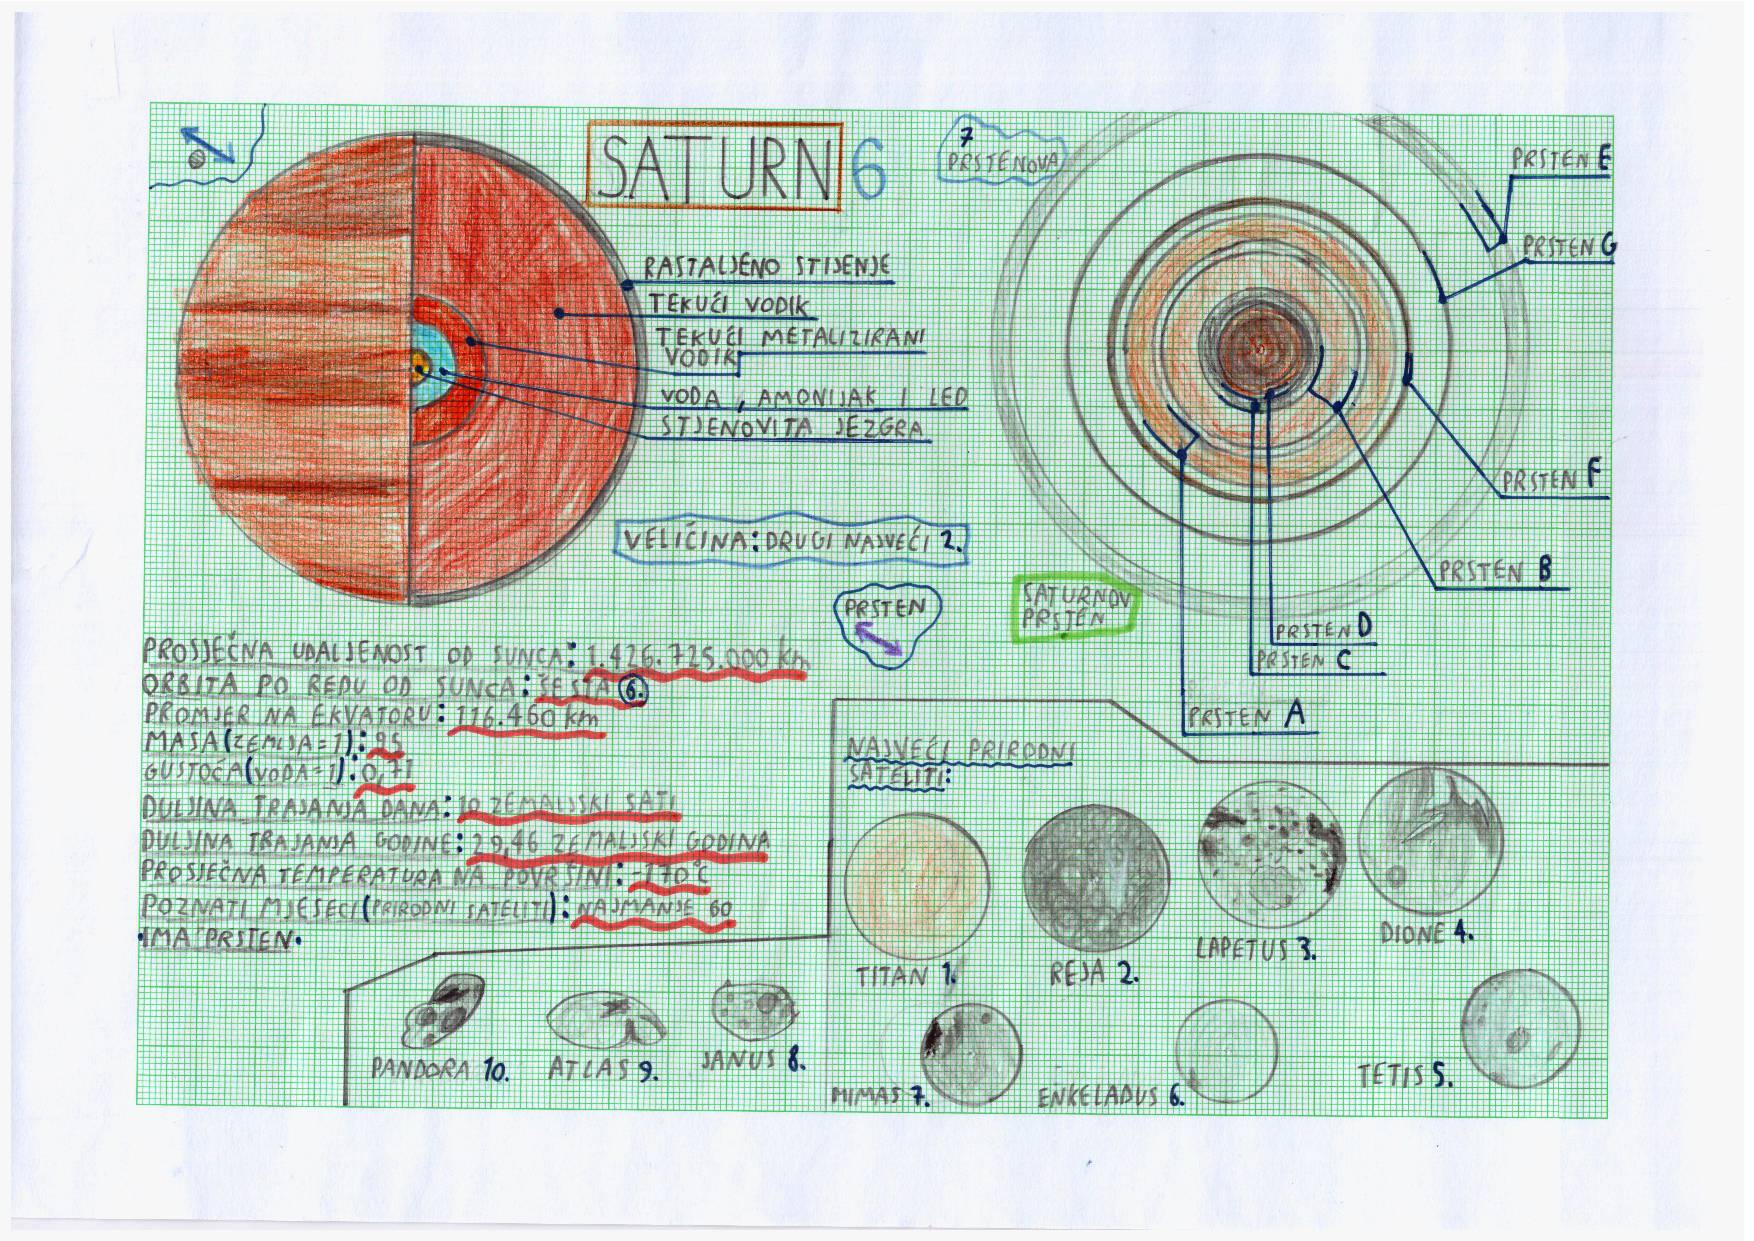 SATURN 6
7
PRSTENOVA
PRSTEN E
PRSTEN G
RASTALJENO STIJENJE
TEKUĆI VODIK
TEKUĆI METALIZIRANI
VODIK
VODA, AMONIJAK I LED
STJENOVITA JEZGRA
PRSTEN F
VELIČINA: DRUGI NAJVEĆI 2.
PRSTEN B
PRSTEN
SATURNOV
PRSTEN
PRSTEN D
PRSTEN C
PRSTEN A
PROSJEČNA UDALJENOST OD SUNCA: 1.426.725.000 km
ORBITA PO REDU OD SUNCA: ŠESTA 6.
PROMJER NA EKVATORU: 116.460 km
MASA (ZEMLJA=1): 95
GUSTOĆA (VODA=1): 0,71
DULJINA TRAJANJA DANA: 10 ZEMALJSKI SATI
DULJINA TRAJANJA GODINE: 29,46 ZEMALJSKI GODINA
PROSJEČNA TEMPERATURA NA POVRŠINI: -170°C
POZNATI MJESECI (PRIRODNI SATELITI): NAJMANJE 60
•IMA PRSTEN•
NAJVEĆI PRIRODNI
SATELITI:
TITAN 1.
REJA 2.
LAPETUS 3.
DIONE 4.
PANDORA 10.
ATLAS 9.
JANUS 8.
MIMAS 7.
ENKELADUS 6.
TETIS 5.